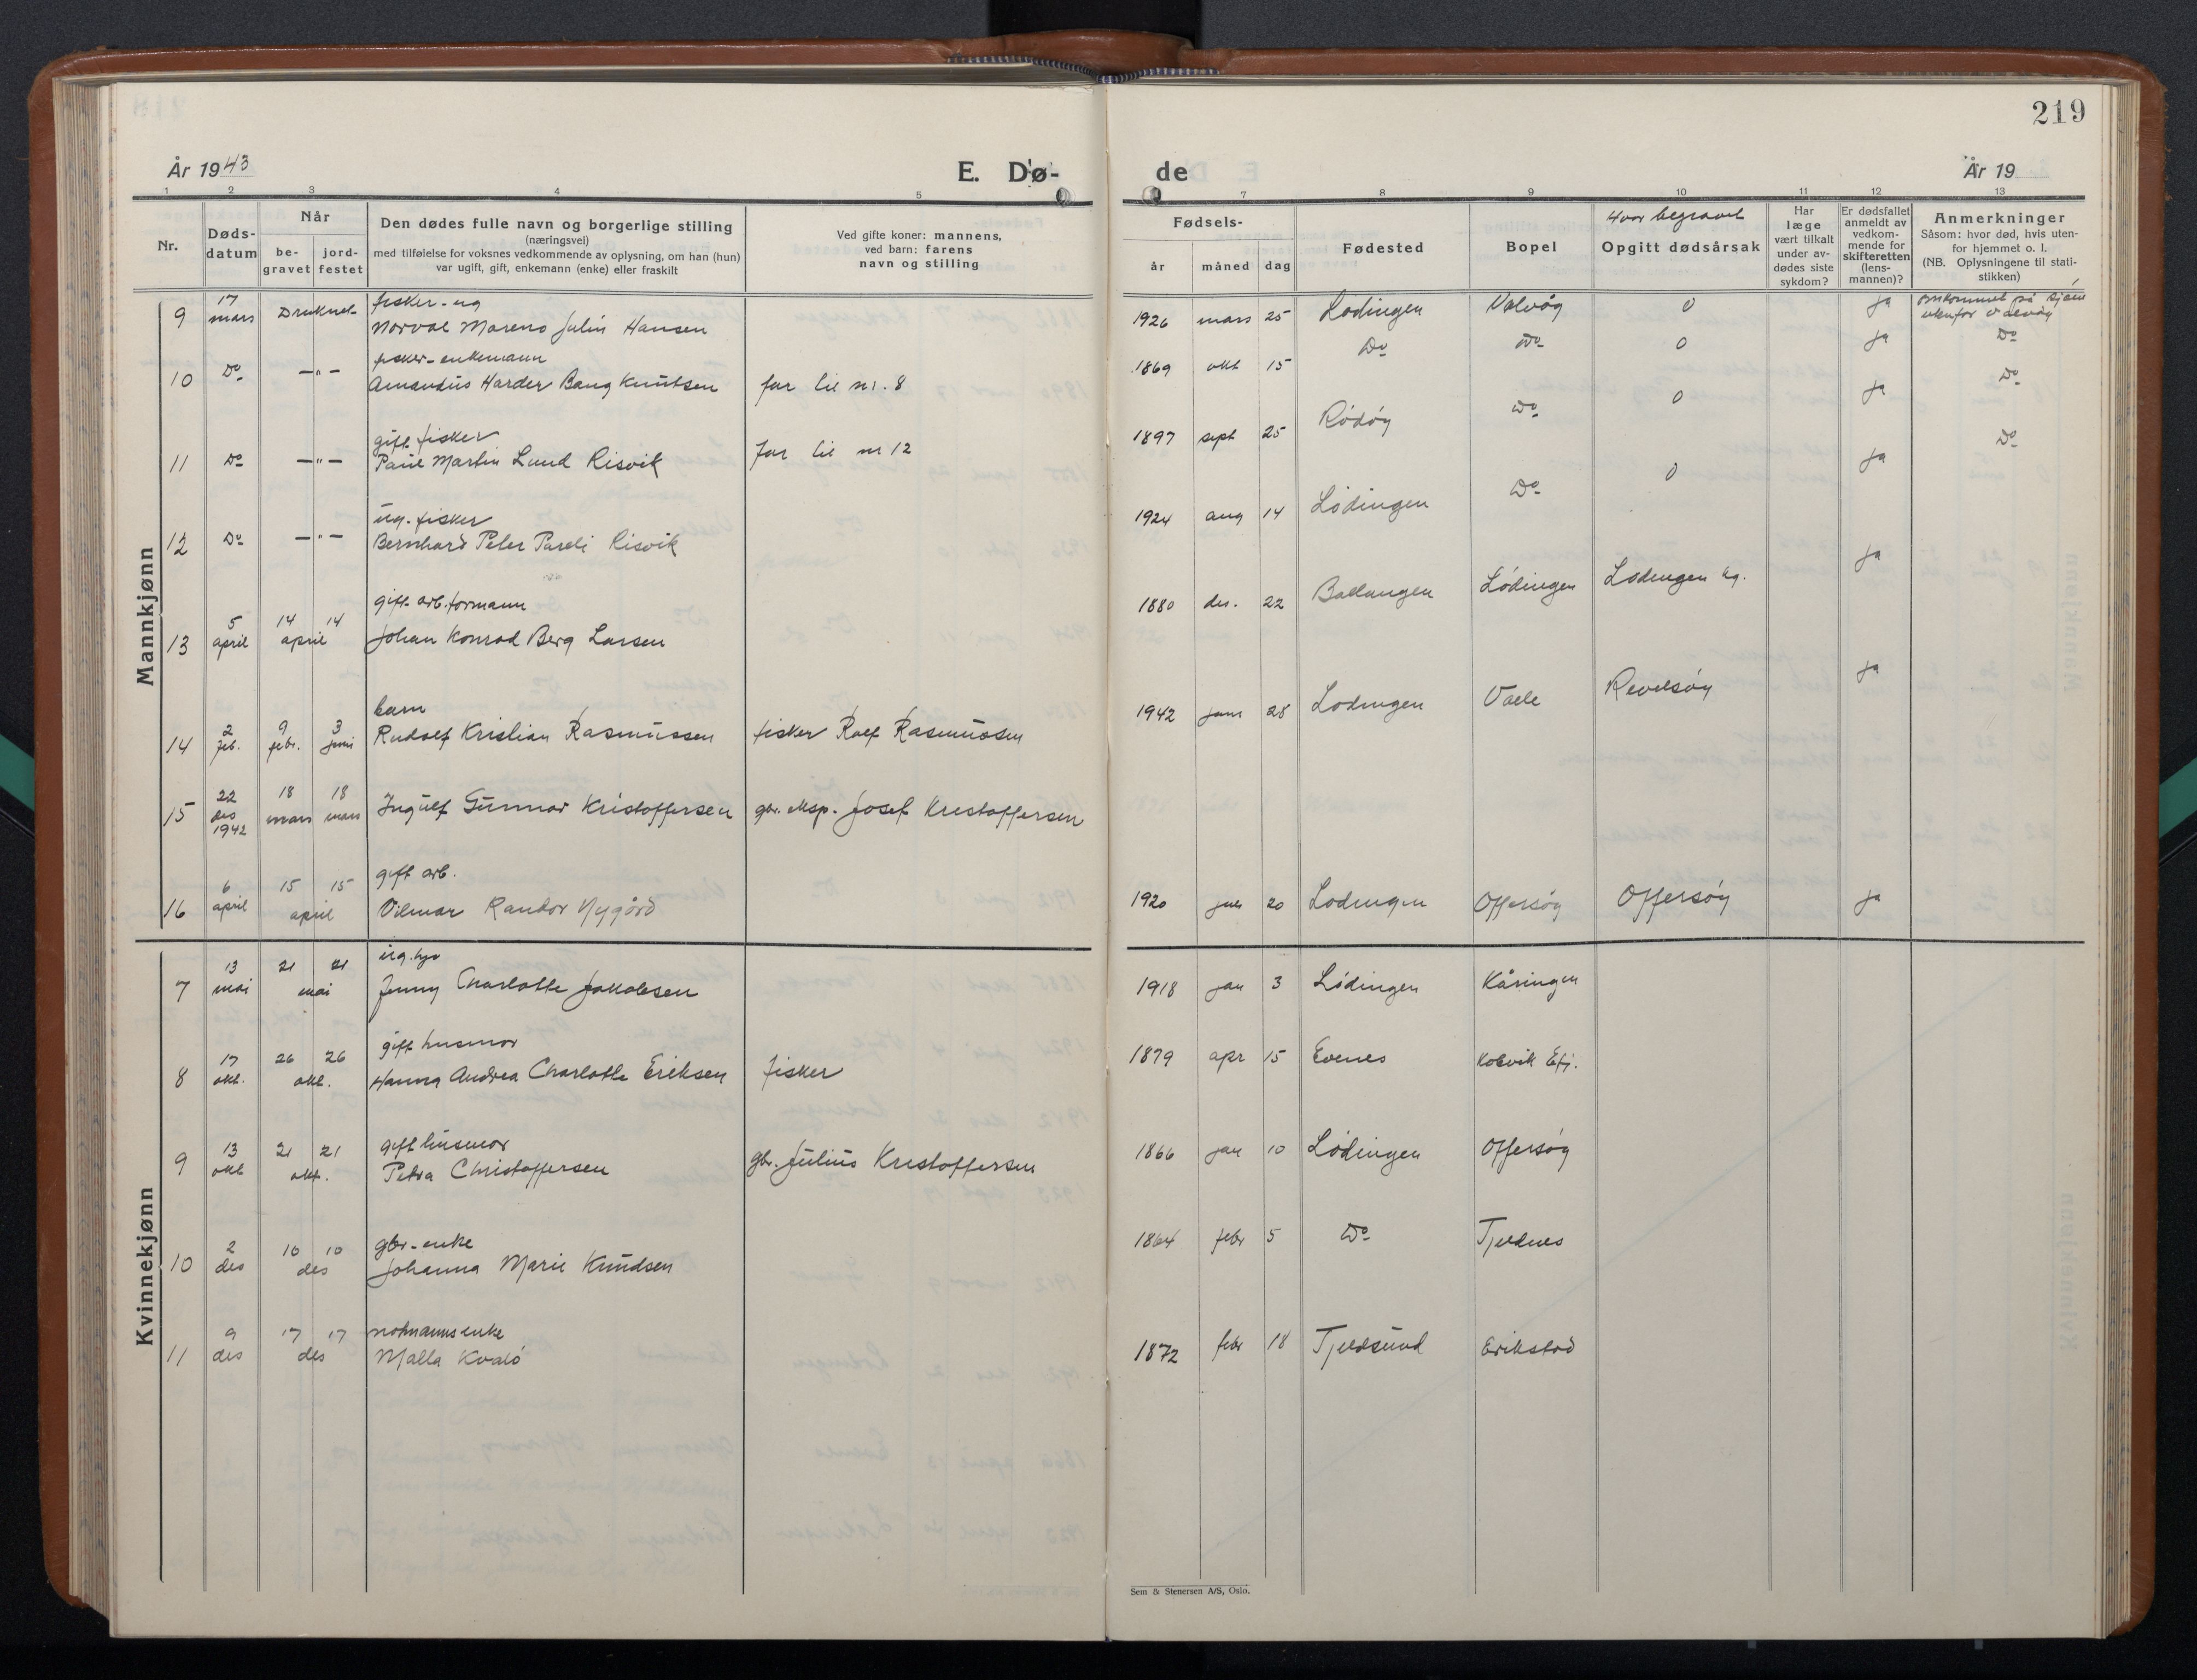 219
År 1943
E. Dø-
de
År 19
1 2 3 4 5 7 8 9 10 11 12 13
Nr.
Døds-
datum
Når
be-
gravet
jord-
festet
Den dødes fulle navn og borgerlige stilling
(næringsvei)
med tilføielse for voksnes vedkommende av oplysning, om han (hun)
var ugift, gift, enkemann (enke) eller fraskilt
Ved gifte koner: mannens,
ved barn: farens
navn og stilling
Fødsels-
år måned dag
Fødested
Bopel
Hvor begravet
Opgitt dødsårsak
Har
læge
vært tilkalt
under av-
dødes siste
sykdom?
Er dødsfallet
anmeldt av
vedkom-
mende for
skifteretten
(lens-
mannen)?
Anmerkninger
Såsom: hvor død, hvis uten-
for hjemmet o. l.
(NB. Oplysningene til stati-
stikken)
Mannkjønn
17 fisker-ug
9 mars Druknet Norval Mareno Julin Hansen 1926 mars 25 Lødingen Valvåg 0 ja omkommet på sjøen
utenfor Valvåg
fisker-enkemann
10 Do —"— Amandus Harder Bang Knutsen far til nr. 8 1869 okt 15 Do Do 0 ja Do
gift fisker
11 Do —"— Paul Martin Lund Risvik far til nr 12 1897 sept 25 Rødøy Do 0 ja Do
ug. fisker
12 Do —"— Bernhard Peter Pareli Risvik 1924 aug 14 Lødingen Do 0 ja Do
5 14 14 gift arb. formann
13 april april Johan Konrad Berg Larsen 1880 des. 22 Ballangen Lødingen Lødingen kg. ja
2 9 3 barn
14 feb. febr. juni Rudolf Kristian Rasmussen fisker Rolf Rasmussen 1942 28 Lødingen Revelsøy ja
22 18 18
15 des mars mars Ingulf Gunnar Kristoffersen gbr. eksp. Josef Kristoffersen
1942
6 15 15 gift arb.
16 april april Vilmar Randor Nygård 1920 20 Lødingen Offersøy Offersøy ja
Kvinnekjønn
13 21 21 ug.
7 mai mai Jenny Charlotte Jakobsen 1918 jan 3 Lødingen Kåringen
17 26 26 gift husmor
8 okt. okt. Hanna Andrea Charlotte Eriksen fisker 1879 apr 15 Evenes Kobvik Efj.
13 21 21 gift husmor
9 okt okt. Petra Christoffersen gbr. Julius Kristoffersen 1866 jan 10 Lødingen Offersøy
2 10 10 gbr-enke
10 des des Johanna Marie Knudsen 1864 febr 5 Do Tjeldnes
9 17 17 notmannsenke
11 des des Malla Kvalø 1872 febr 18 Tjeldsund Erikstad
Sem & Stenersen A/S, Oslo.